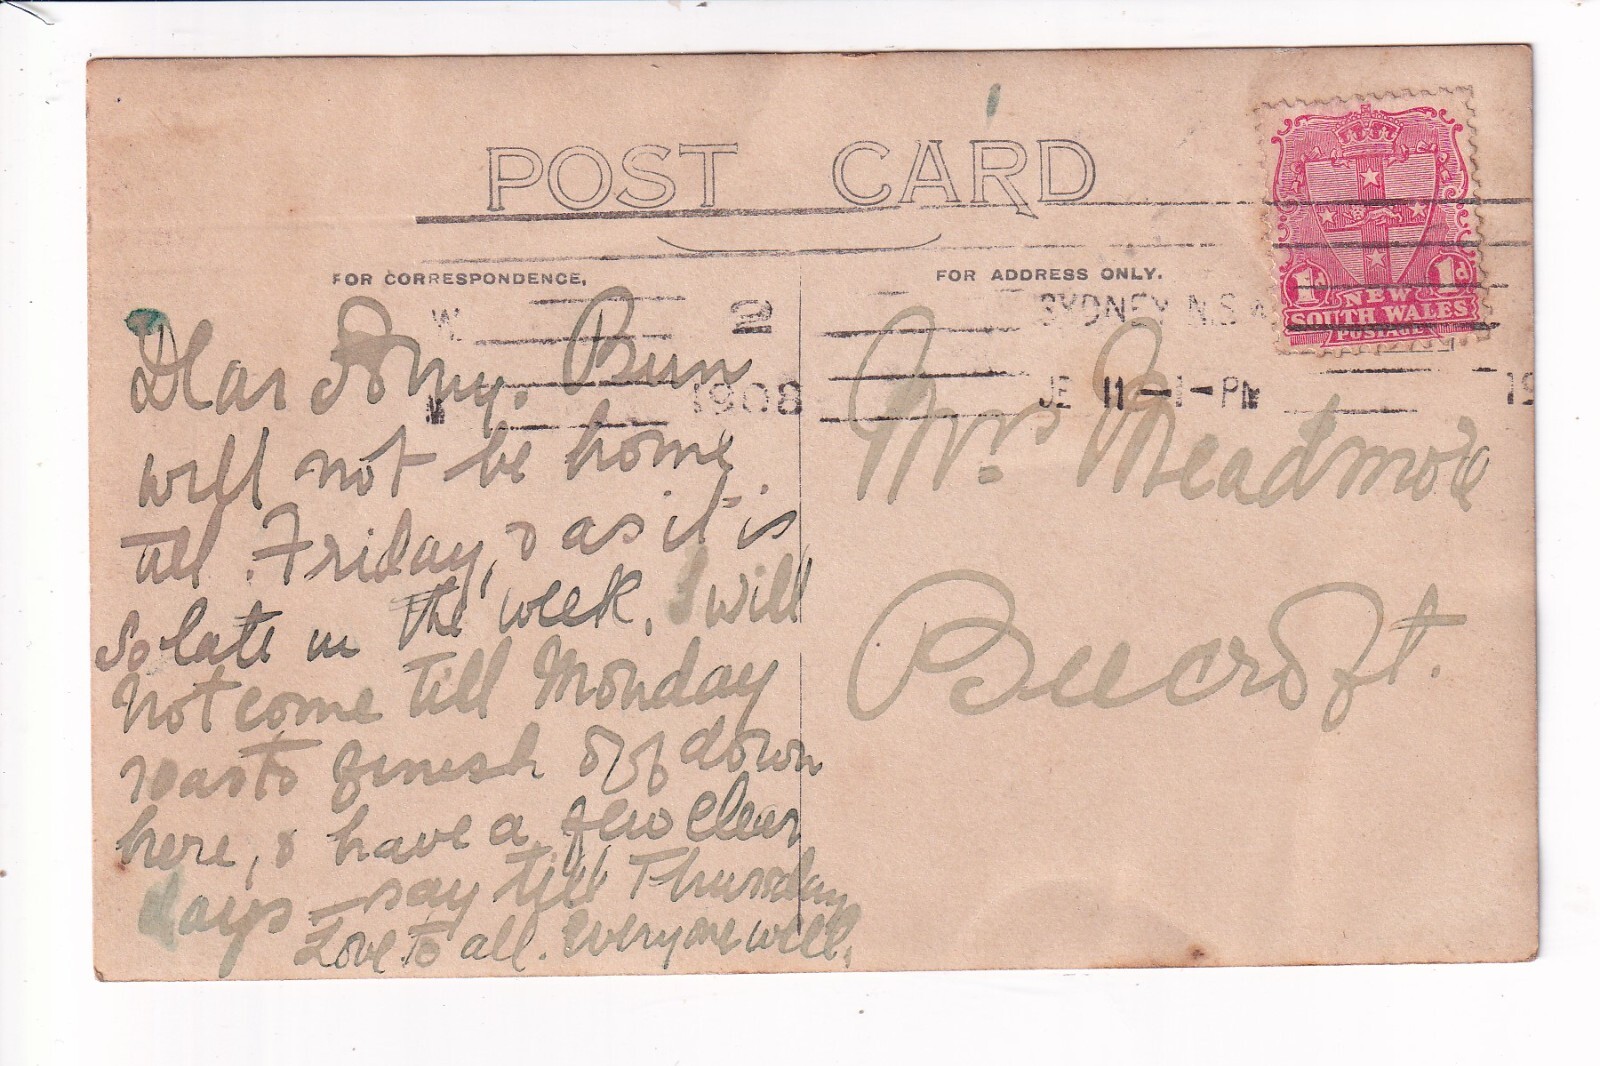 POST CARD
FOR CORRESPONDENCE,
FOR ADDRESS ONLY.
1d 1d
NEW
SOUTH WALES
POSTAGE
SYDNEY N.S.W
2
1908
JE 11 -1-PM
19
Dear Bun
will not be home
till Friday, & as it is
so late in the week, I will
not come till Monday
so as to finish off down
here, & have a few clear
days — say till Thursday
Love to all. Everyone well.
Mrs Meadmore
Beecroft.